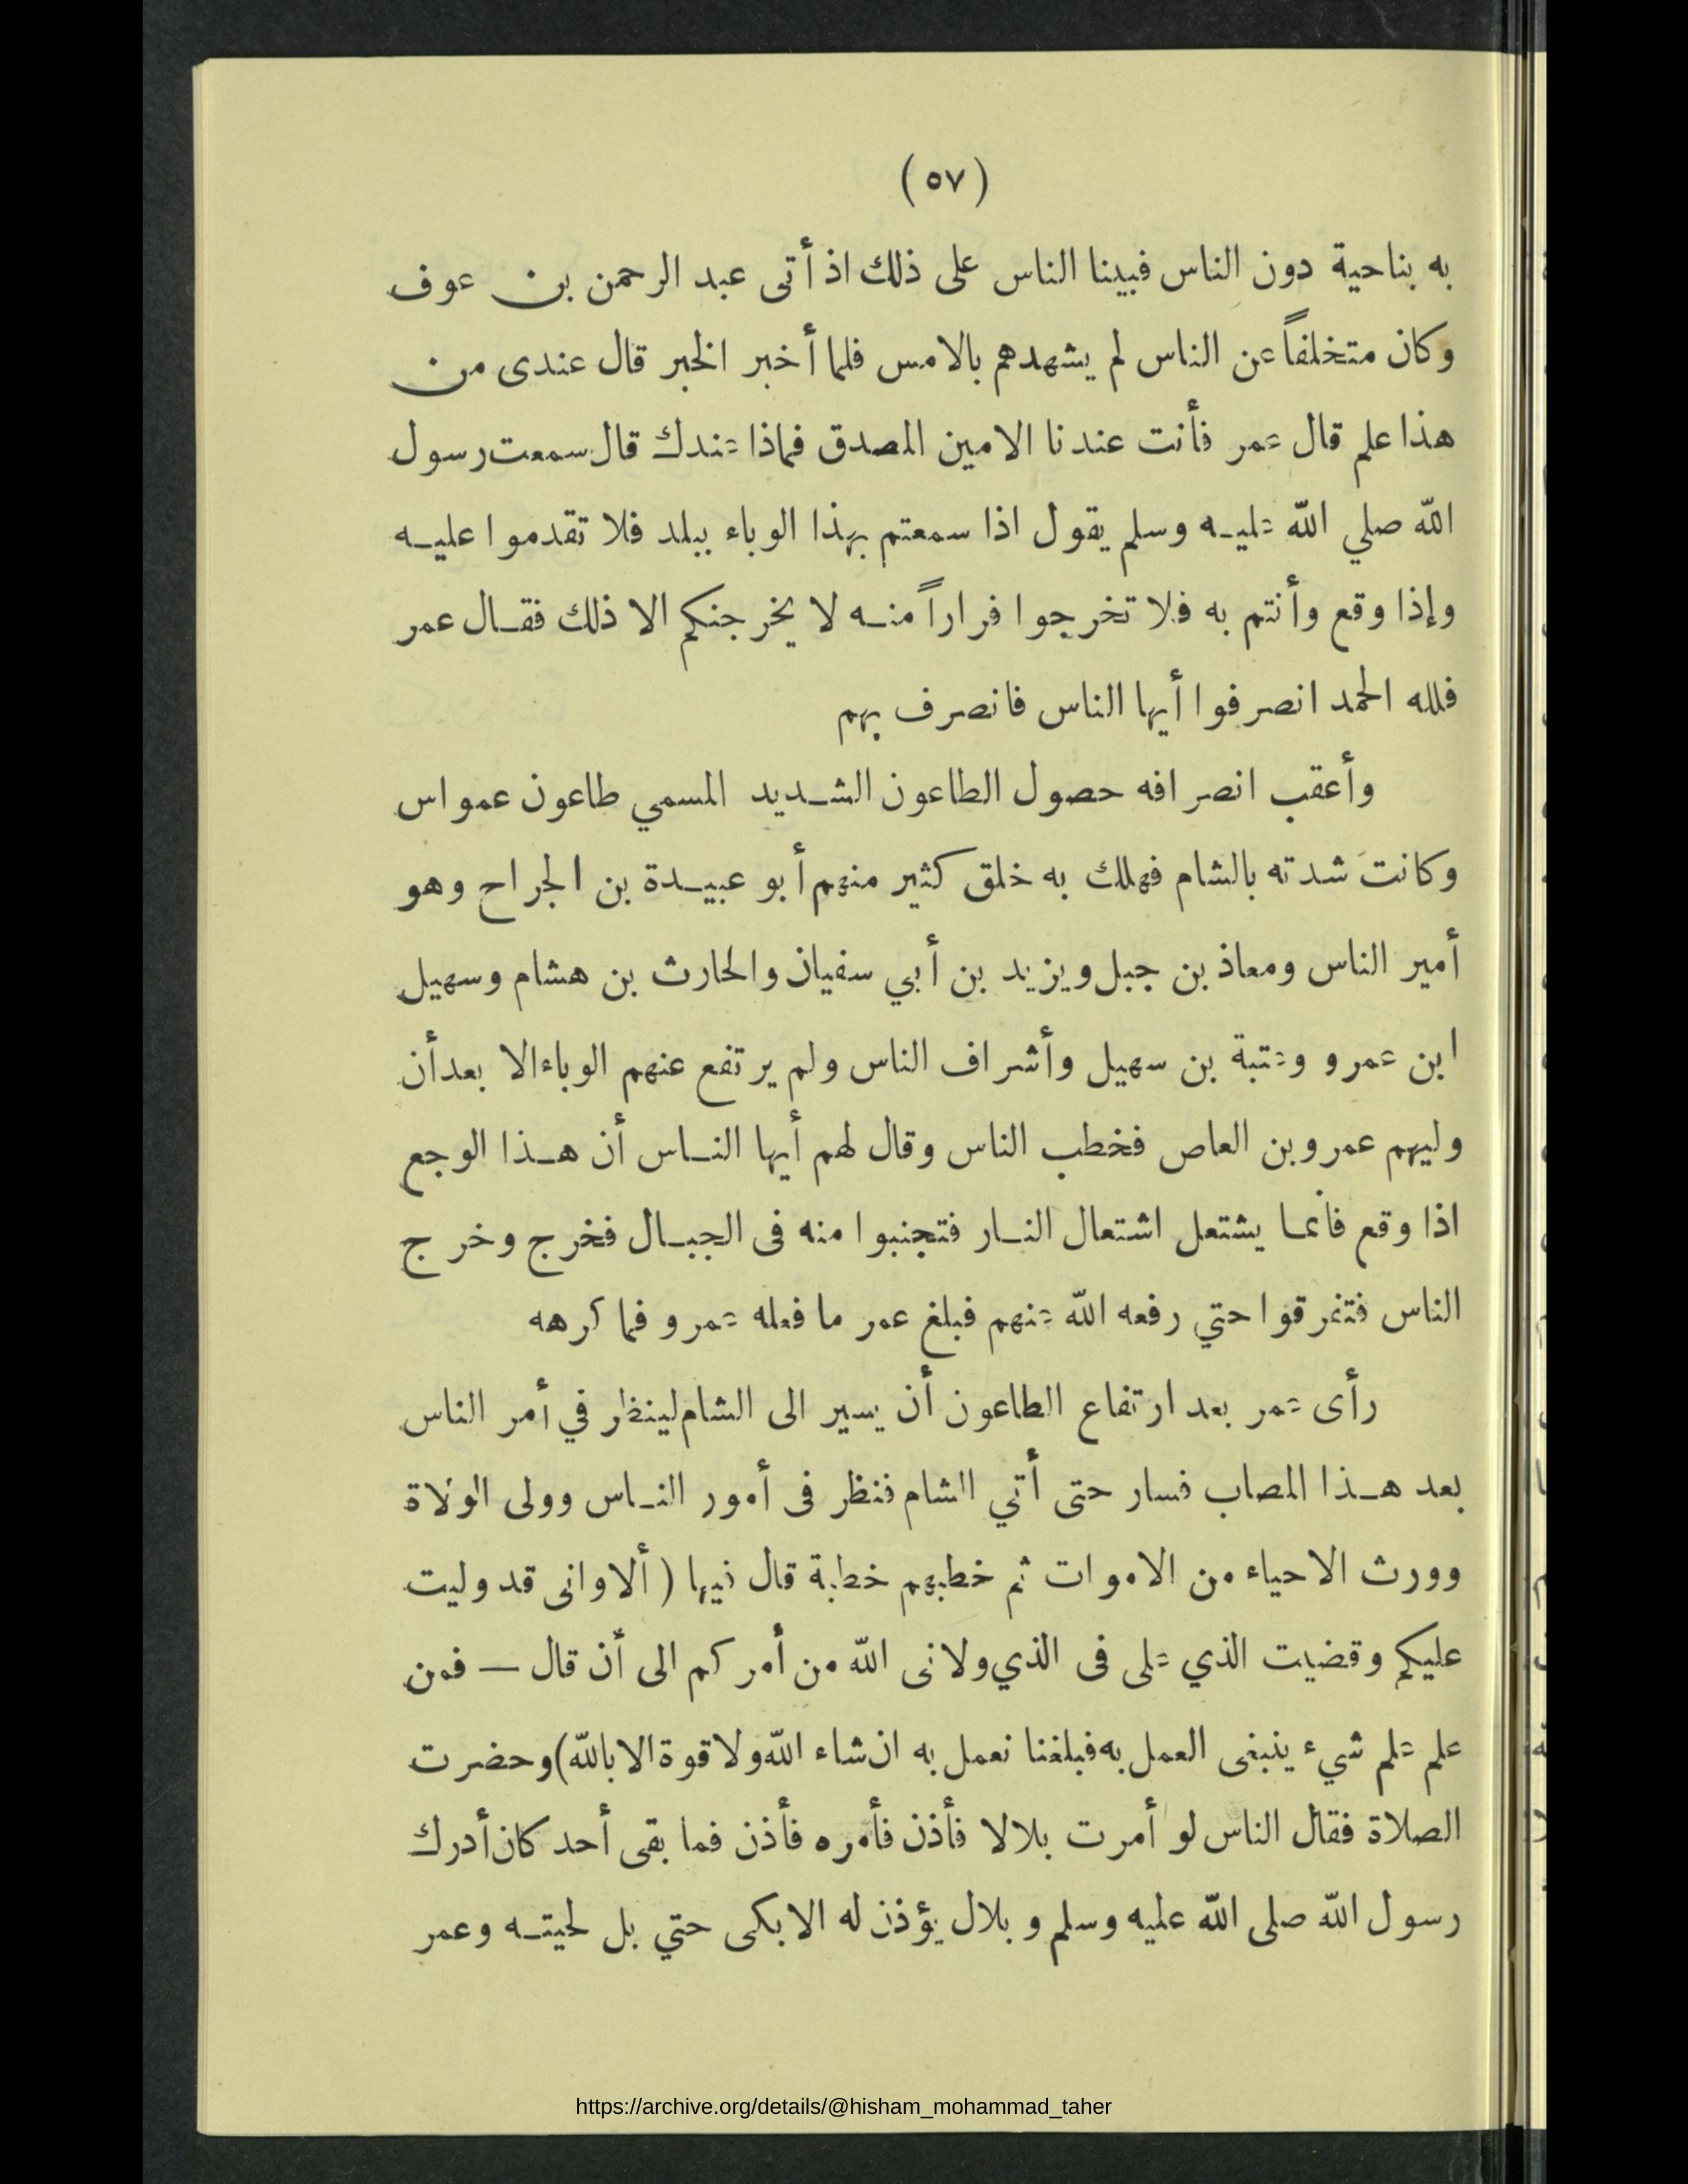 (٥٧)
به بناحية دون الناس فبينا الناس على ذلك اذ أتى عبد الرحمن بن عوف
وكان متخلفاً عن الناس لم يشهدهم بالامس فلما أخبر الخبر قال عندى من
هذا علم قال عمر فأنت عندنا الامين المصدق فماذا عندك قال سمعت رسول
الله صلي الله عليه وسلم يقول اذا سمعتم بهذا الوباء ببلد فلا تقدموا عليه
وإذا وقع وأنتم به فلا تخرجوا فراراً منه لا يخرجنكم الا ذلك فقال عمر
فلله الحمد انصرفوا أيها الناس فانصرف بهم
وأعقب انصرافه حصول الطاعون الشديد المسمي طاعون عمواس
وكانت شدته بالشام فهلك به خلق كثير منهم أبو عبيدة بن الجراح وهو
أمير الناس ومعاذ بن جبل ويزيد بن أبي سفيان والحارث بن هشام وسهيل
ابن عمرو وعتبة بن سهيل وأشراف الناس ولم يرتفع عنهم الوباء الا بعد أن
وليهم عمرو بن العاص فخطب الناس وقال لهم أيها الناس أن هذا الوجع
اذا وقع فأنما يشتعل اشتعال النار فتجنبوا منه فى الجبال فخرج وخرج
الناس فتفرقوا حتي رفعه الله عنهم فبلغ عمر ما فعله عمرو فما كرهه
رأى عمر بعد ارتفاع الطاعون أن يسير الى الشام لينظر في أمر الناس
بعد هذا المصاب فسار حتى أتي الشام فنظر فى أمور الناس وولى الولاة
وورث الاحياء من الاموات ثم خطبهم خطبة قال فيها (ألا وانى قد وليت
عليكم وقضيت الذي على فى الذي ولانى الله من أمركم الى أن قال — فمن
علم علم شيء ينبغى العمل به فبلغنا نعمل به ان شاء الله ولا قوة الا بالله) وحضرت
الصلاة فقال الناس لو أمرت بلالا فأذن فأمره فأذن فما بقى أحد كان أدرك
رسول الله صلى الله عليه وسلم وبلال يؤذن له الا بكى حتي بل لحيته وعمر
https://archive.org/details/@hisham_mohammad_taher